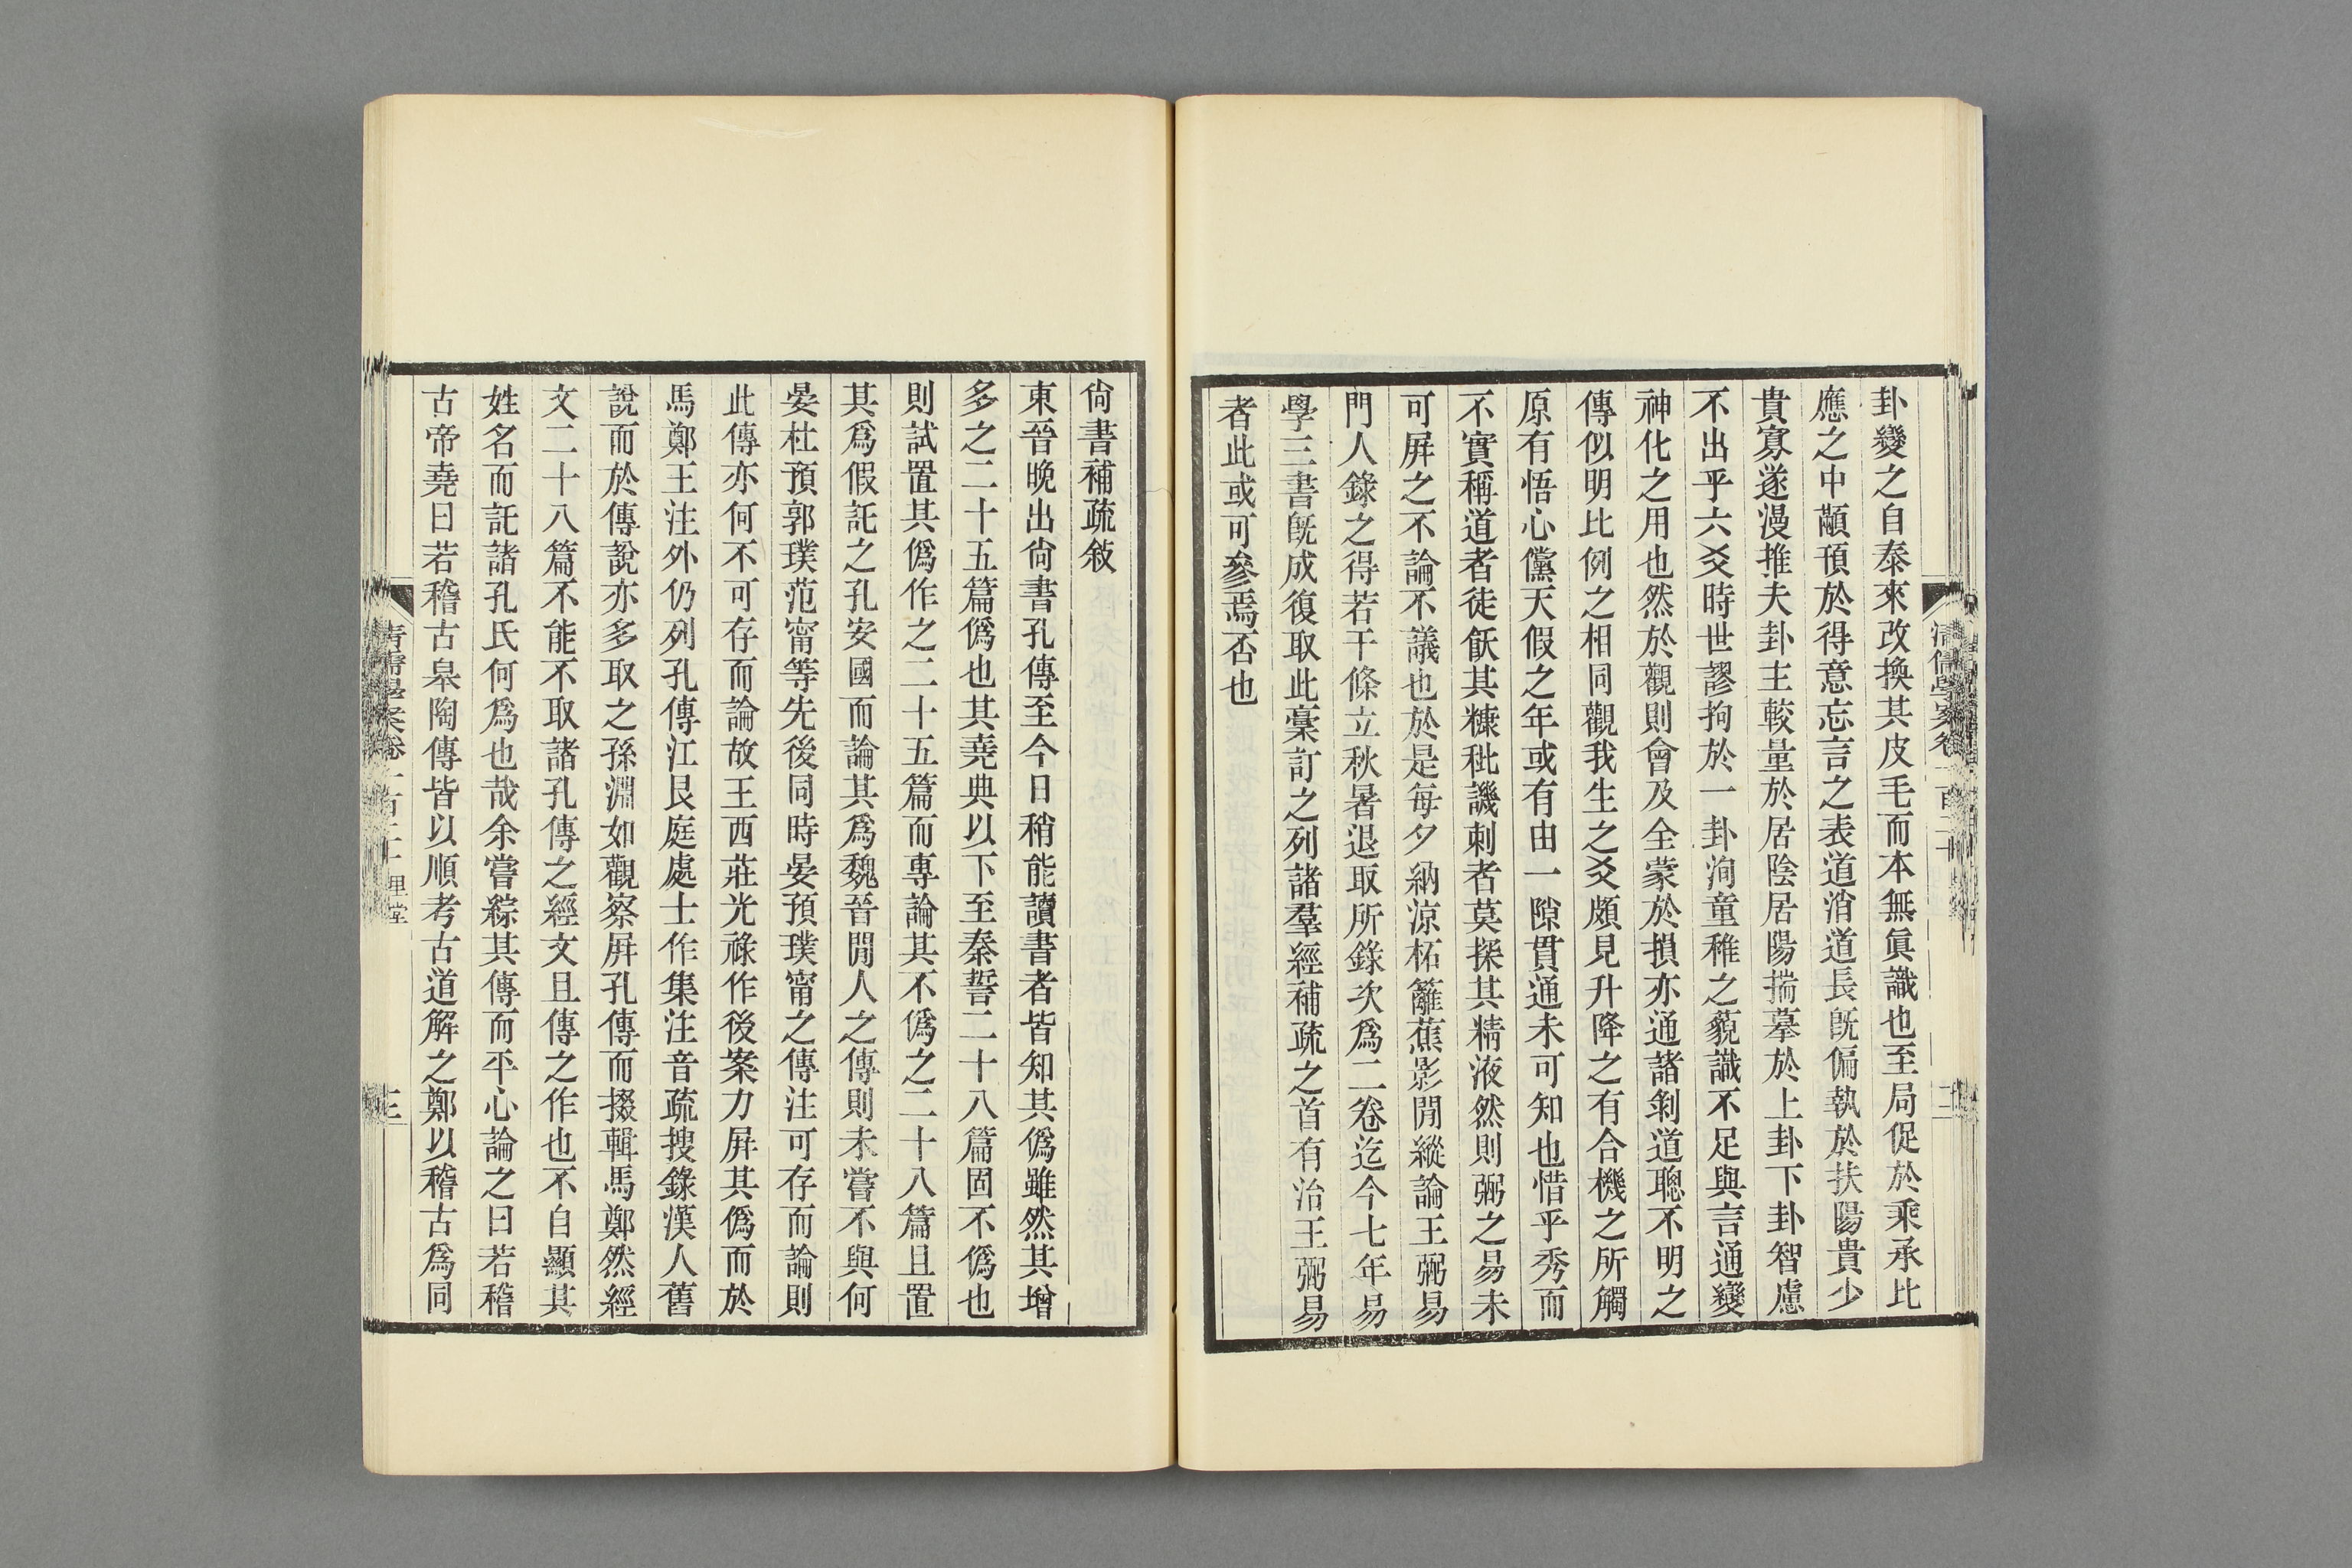 卦變之自泰來改換其皮毛而本無眞識也至局促於乘承比
應之中顢頇於得意忘言之表道消道長旣偏執於扶陽貴少
貴寡遂漫推夫卦主較量於居陰居陽揣摹於上卦下卦智慮
不出乎六爻時世謬拘於一卦洵童稚之藐識不足與言通變
神化之用也然於觀則會及全蒙於損亦通諸剝道聰不明之
傳似明比例之相同觀我生之爻頗見升降之有合機之所觸
原有悟心儻天假之年或有由一隙貫通未可知也惜乎秀而
不實稱道者徒飫其糠秕譏刺者莫探其精液然則弼之易未
可屏之不論不議也於是每夕納涼柘籬蕉影閒縱論王弼易
門人錄之得若干條立秋暑退取所錄次爲二卷迄今七年易
學三書旣成復取此稾訂之列諸羣經補疏之首有治王弼易
者此或可參焉否也
尙書補疏敍
東晉晚出尙書孔傳至今日稍能讀書者皆知其僞雖然其增
多之二十五篇僞也其堯典以下至秦誓二十八篇固不僞也
則試置其僞作之二十五篇而專論其不僞之二十八篇且置
其爲假託之孔安國而論其爲魏晉閒人之傳則未嘗不與何
晏杜預郭璞范甯等先後同時晏預璞甯之傳注可存而論則
此傳亦何不可存而論故王西莊光祿作後案力屏其僞而於
馬鄭王注外仍列孔傳江艮庭處士作集注音疏搜錄漢人舊
說而於傳說亦多取之孫淵如觀察屏孔傳而掇輯馬鄭然經
文二十八篇不能不取諸孔傳之經文且傳之作也不自顯其
姓名而託諸孔氏何爲也哉余嘗綜其傳而平心論之曰若稽
古帝堯曰若稽古皋陶傳皆以順考古道解之鄭以稽古爲同